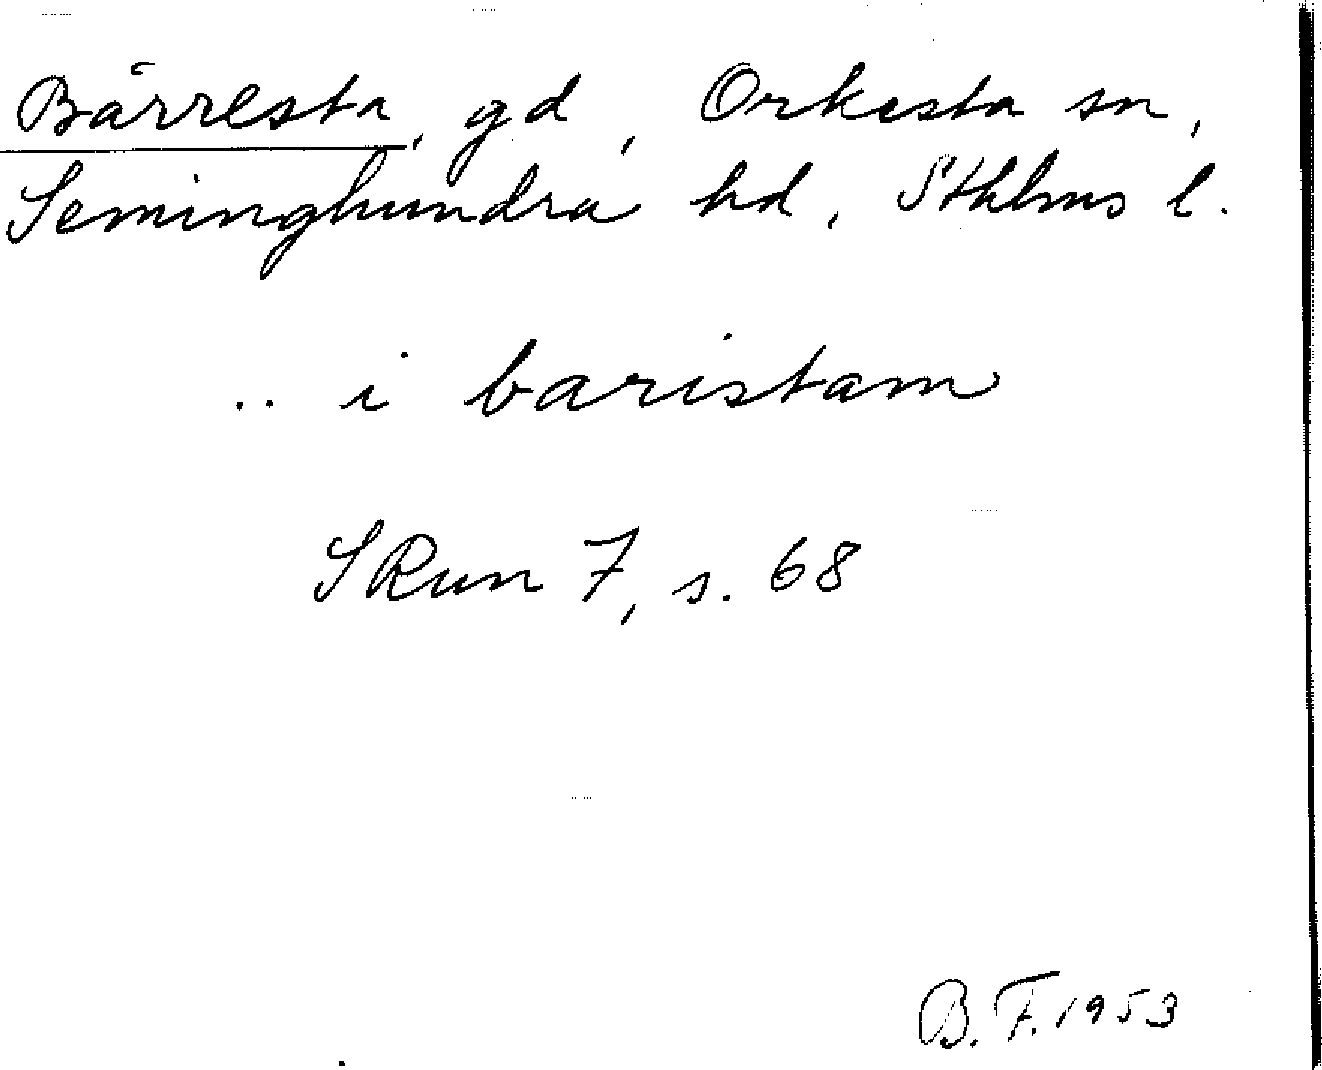 Bärresta, gd, Orkesta sn,
Seminghundra hd, Sthlms l.
.. i baristam
SRun 7, s. 68
B.F. 1953